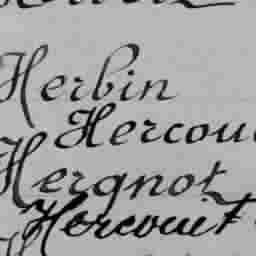 Herbin
Hercou
Hergnot
Hercouit